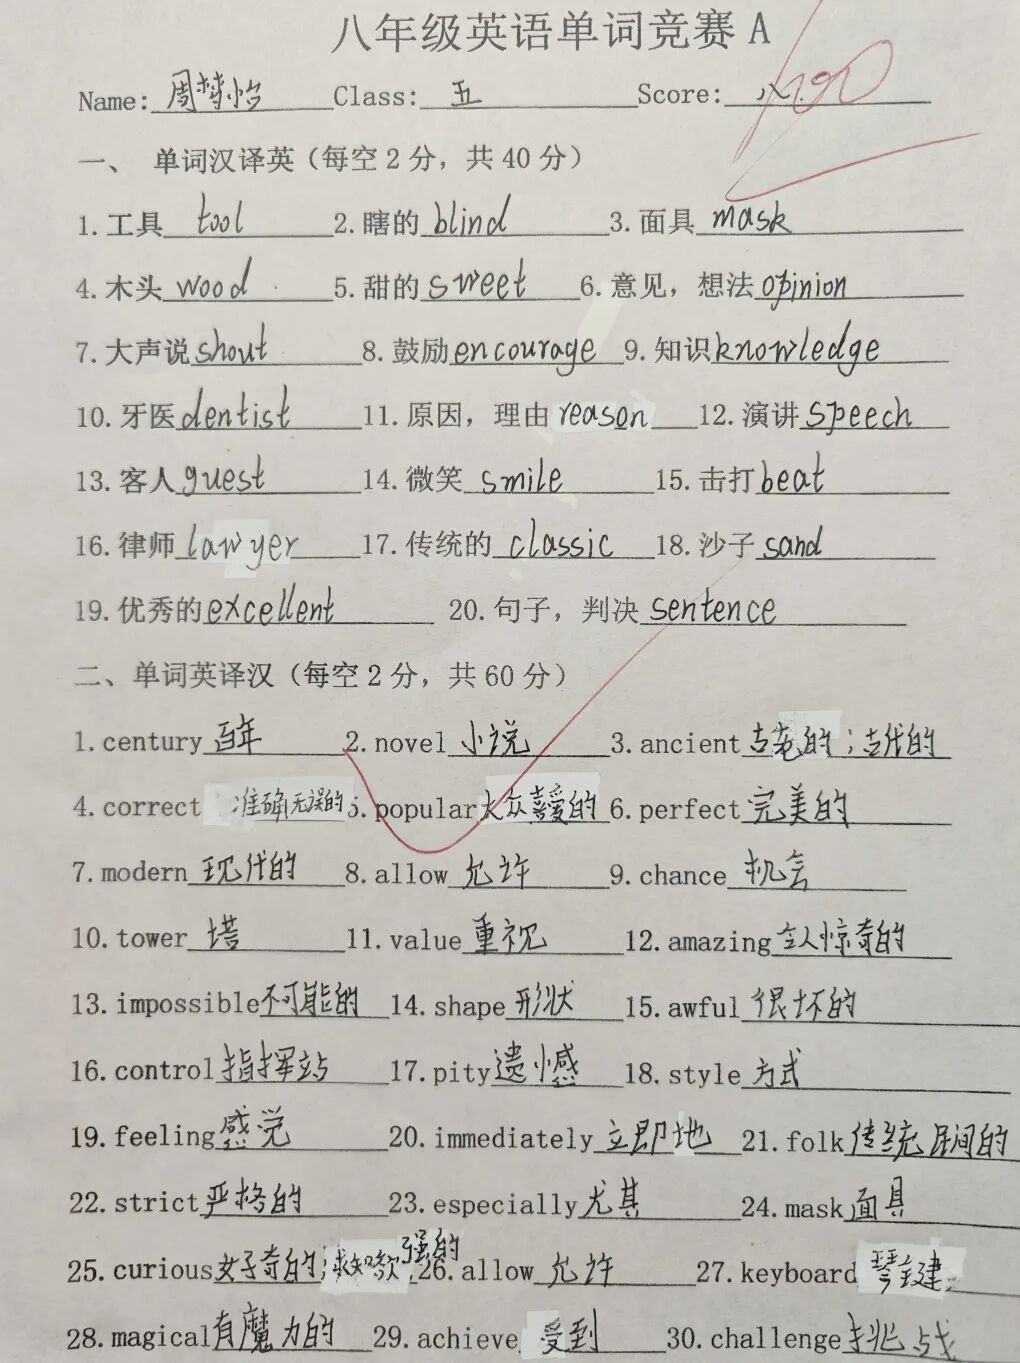 八年级英语单词竞赛 A
Name: 周梦怡 Class: 五 Score: 100
一、 单词汉译英（每空 2 分，共 40 分）
1.工具 tool 2.瞎的 blind 3.面具 mask
4.木头 wood 5.甜的 sweet 6.意见，想法 opinion
7.大声说 shout 8.鼓励 encourage 9.知识 knowledge
10.牙医 dentist 11.原因，理由 reason 12.演讲 speech
13.客人 guest 14.微笑 smile 15.击打 beat
16.律师 lawyer 17.传统的 classic 18.沙子 sand
19.优秀的 excellent 20.句子，判决 sentence
二、单词英译汉（每空 2 分，共 60 分）
1.century 百年 2.novel 小说 3.ancient 古老的；古代的
4.correct 准确无误的 5.popular 大众喜爱的 6.perfect 完美的
7.modern 现代的 8.allow 允许 9.chance 机会
10.tower 塔 11.value 重视 12.amazing 令人惊奇的
13.impossible 不可能的 14.shape 形状 15.awful 很坏的
16.control 指挥站 17.pity 遗憾 18.style 方式
19.feeling 感觉 20.immediately 立即地 21.folk 传统民间的
22.strict 严格的 23.especially 尤其 24.mask 面具
25.curious 好奇的；求知欲强的 26.allow 允许 27.keyboard 琴键
28.magical 有魔力的 29.achieve 受到 30.challenge 挑战